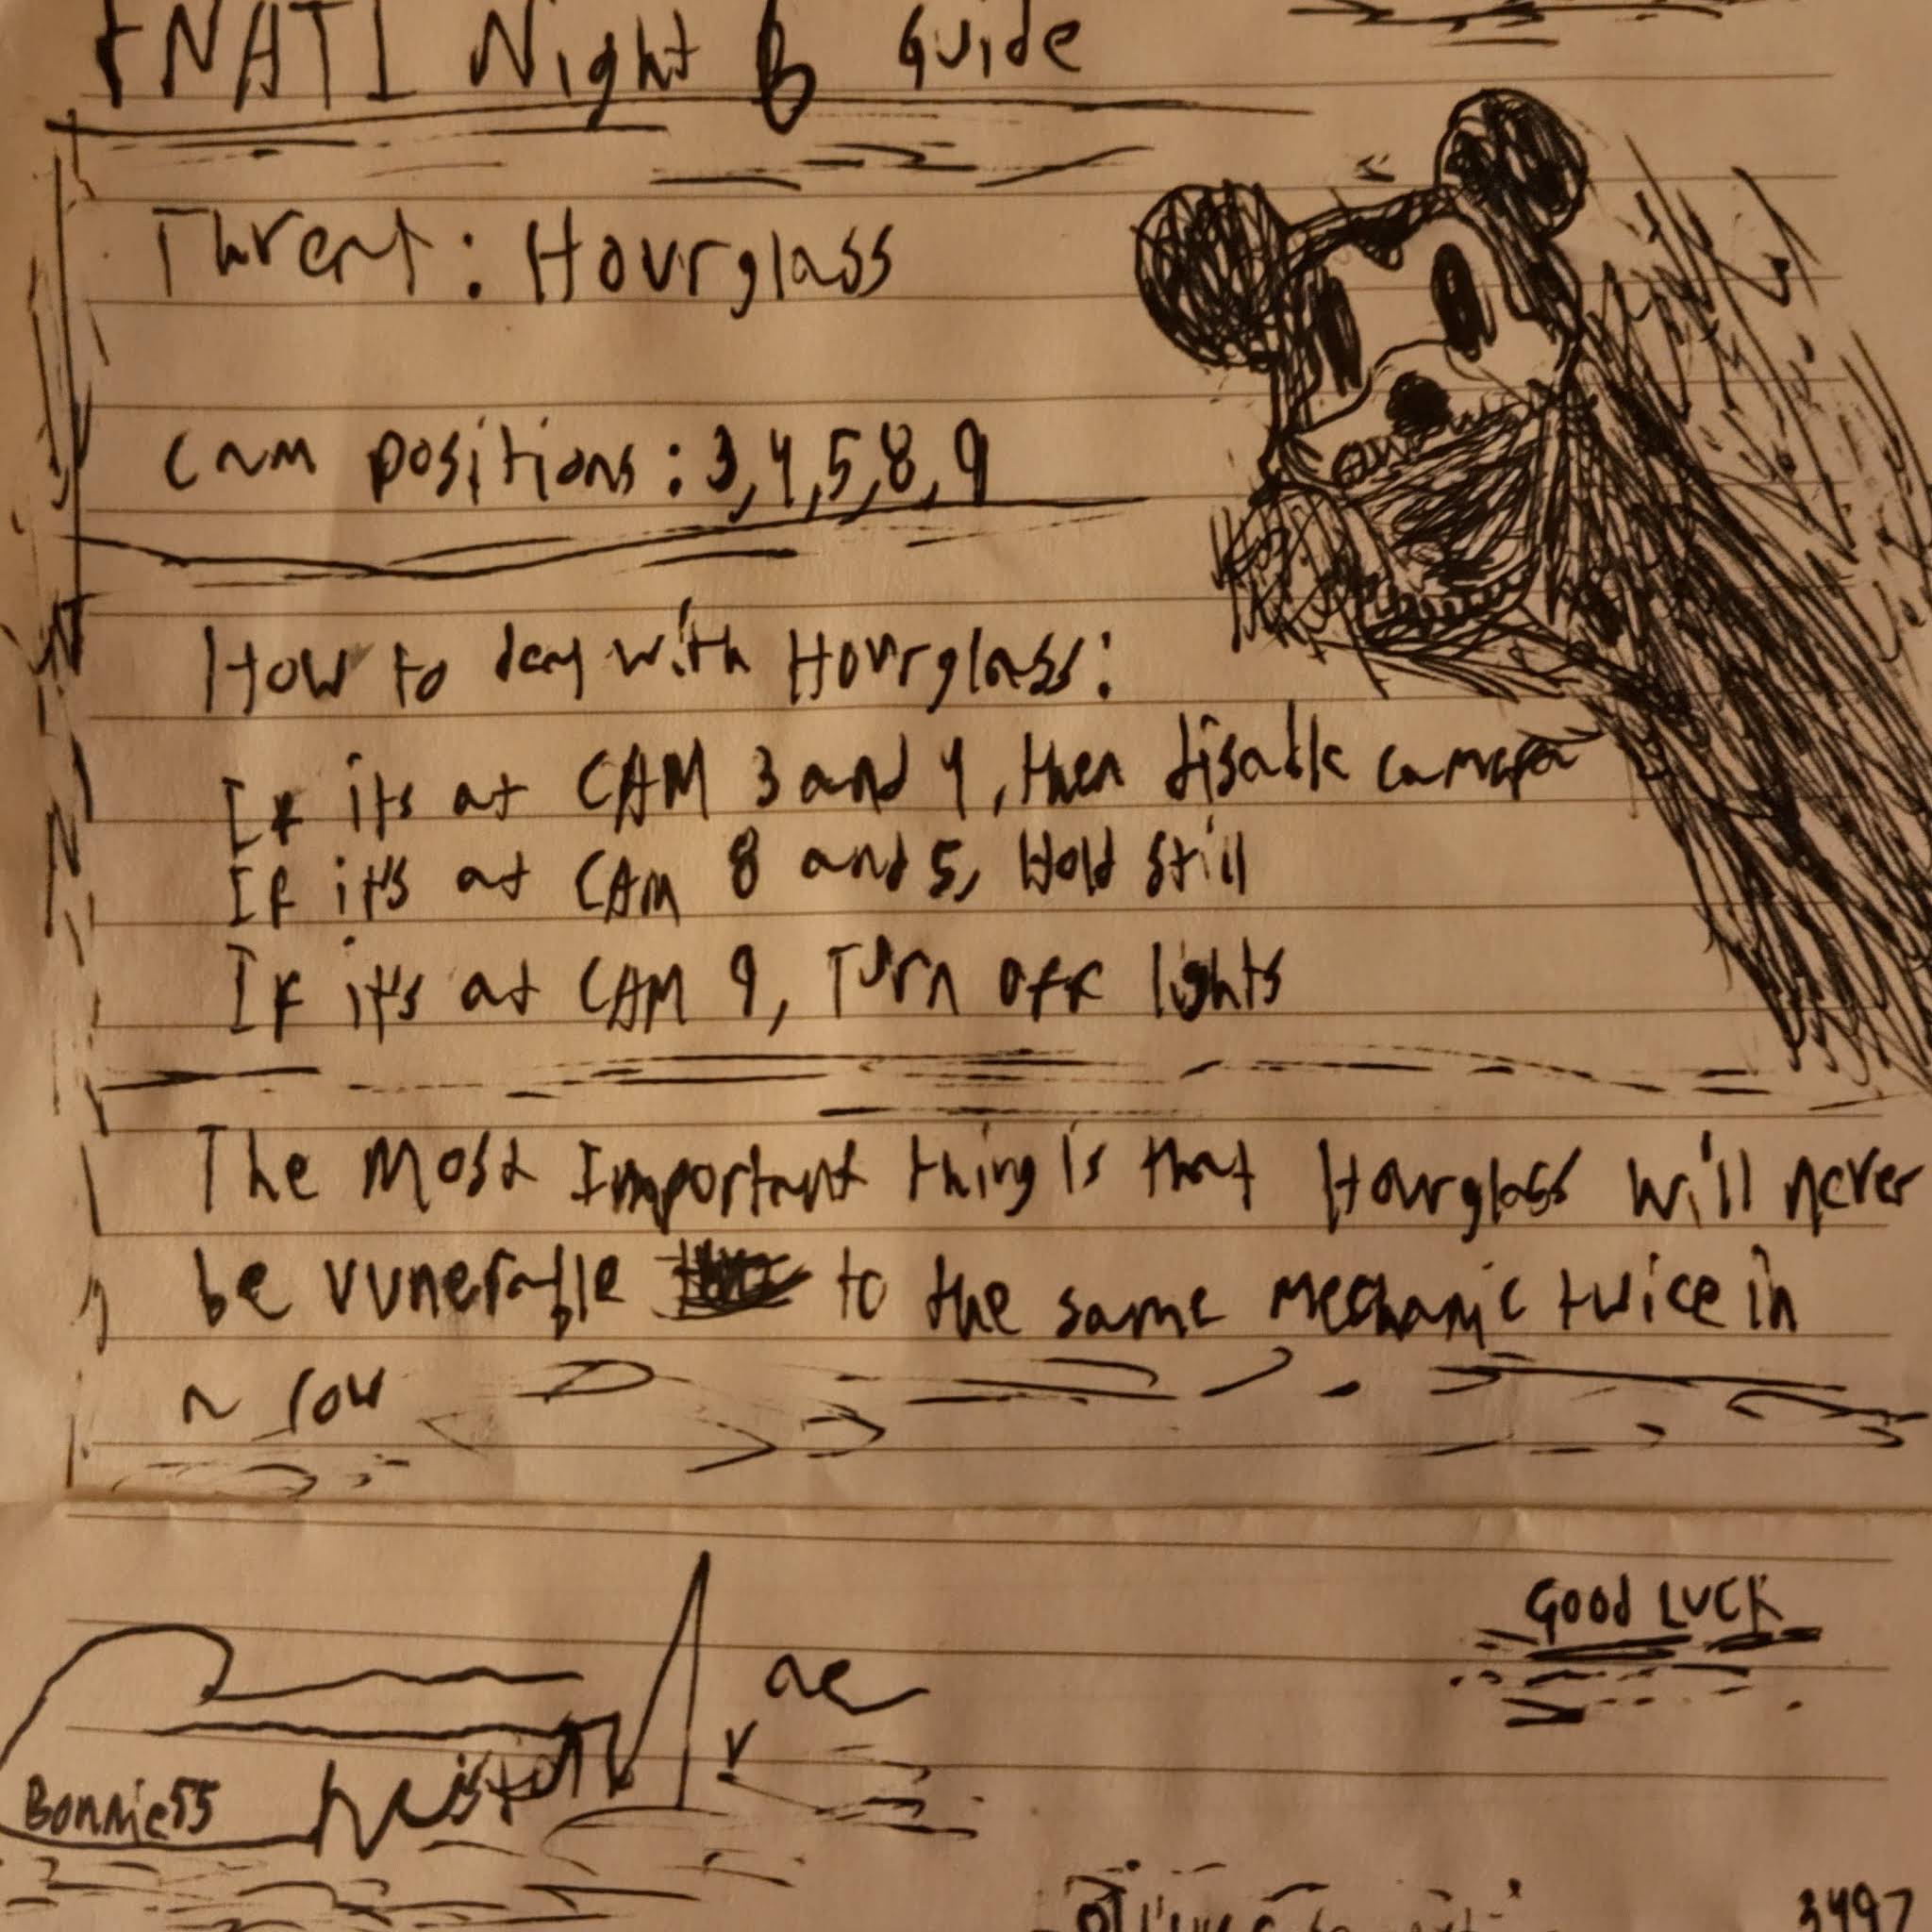 FNATI Night 6 Guide
Threat: Hourglass
Cam positions: 3,4,5,8,9
How to deal with Hourglass:
If its at CAM 3 and 4, then disable camera
If it's at CAM 8 and 5, Hold still
If it's at CAM 9, Turn off lights
The Most Important thing is that Hourglass will never
be vunerable to the same mechanic twice in
a row
GOOd LUCK
Bonnie55
3497